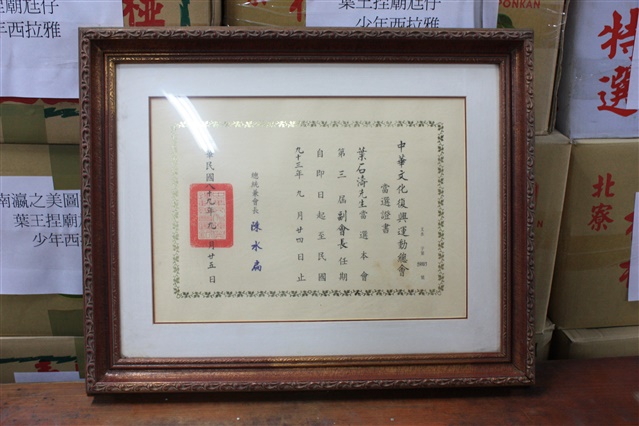 中華文化復興運動總會
當選證書
葉石濤先生當選本會
第三屆副會長任期
自即日起至民國
九十三年九月廿四日止
總統兼會長 陳水扁
華民國八十九年九月廿五日
葉王捏廟尪仔
少年西拉雅
葉王捏廟尪仔
少年西拉雅
PONKAN
特選
南瀛之美圖
葉王捏廟尪
少年西
北寮